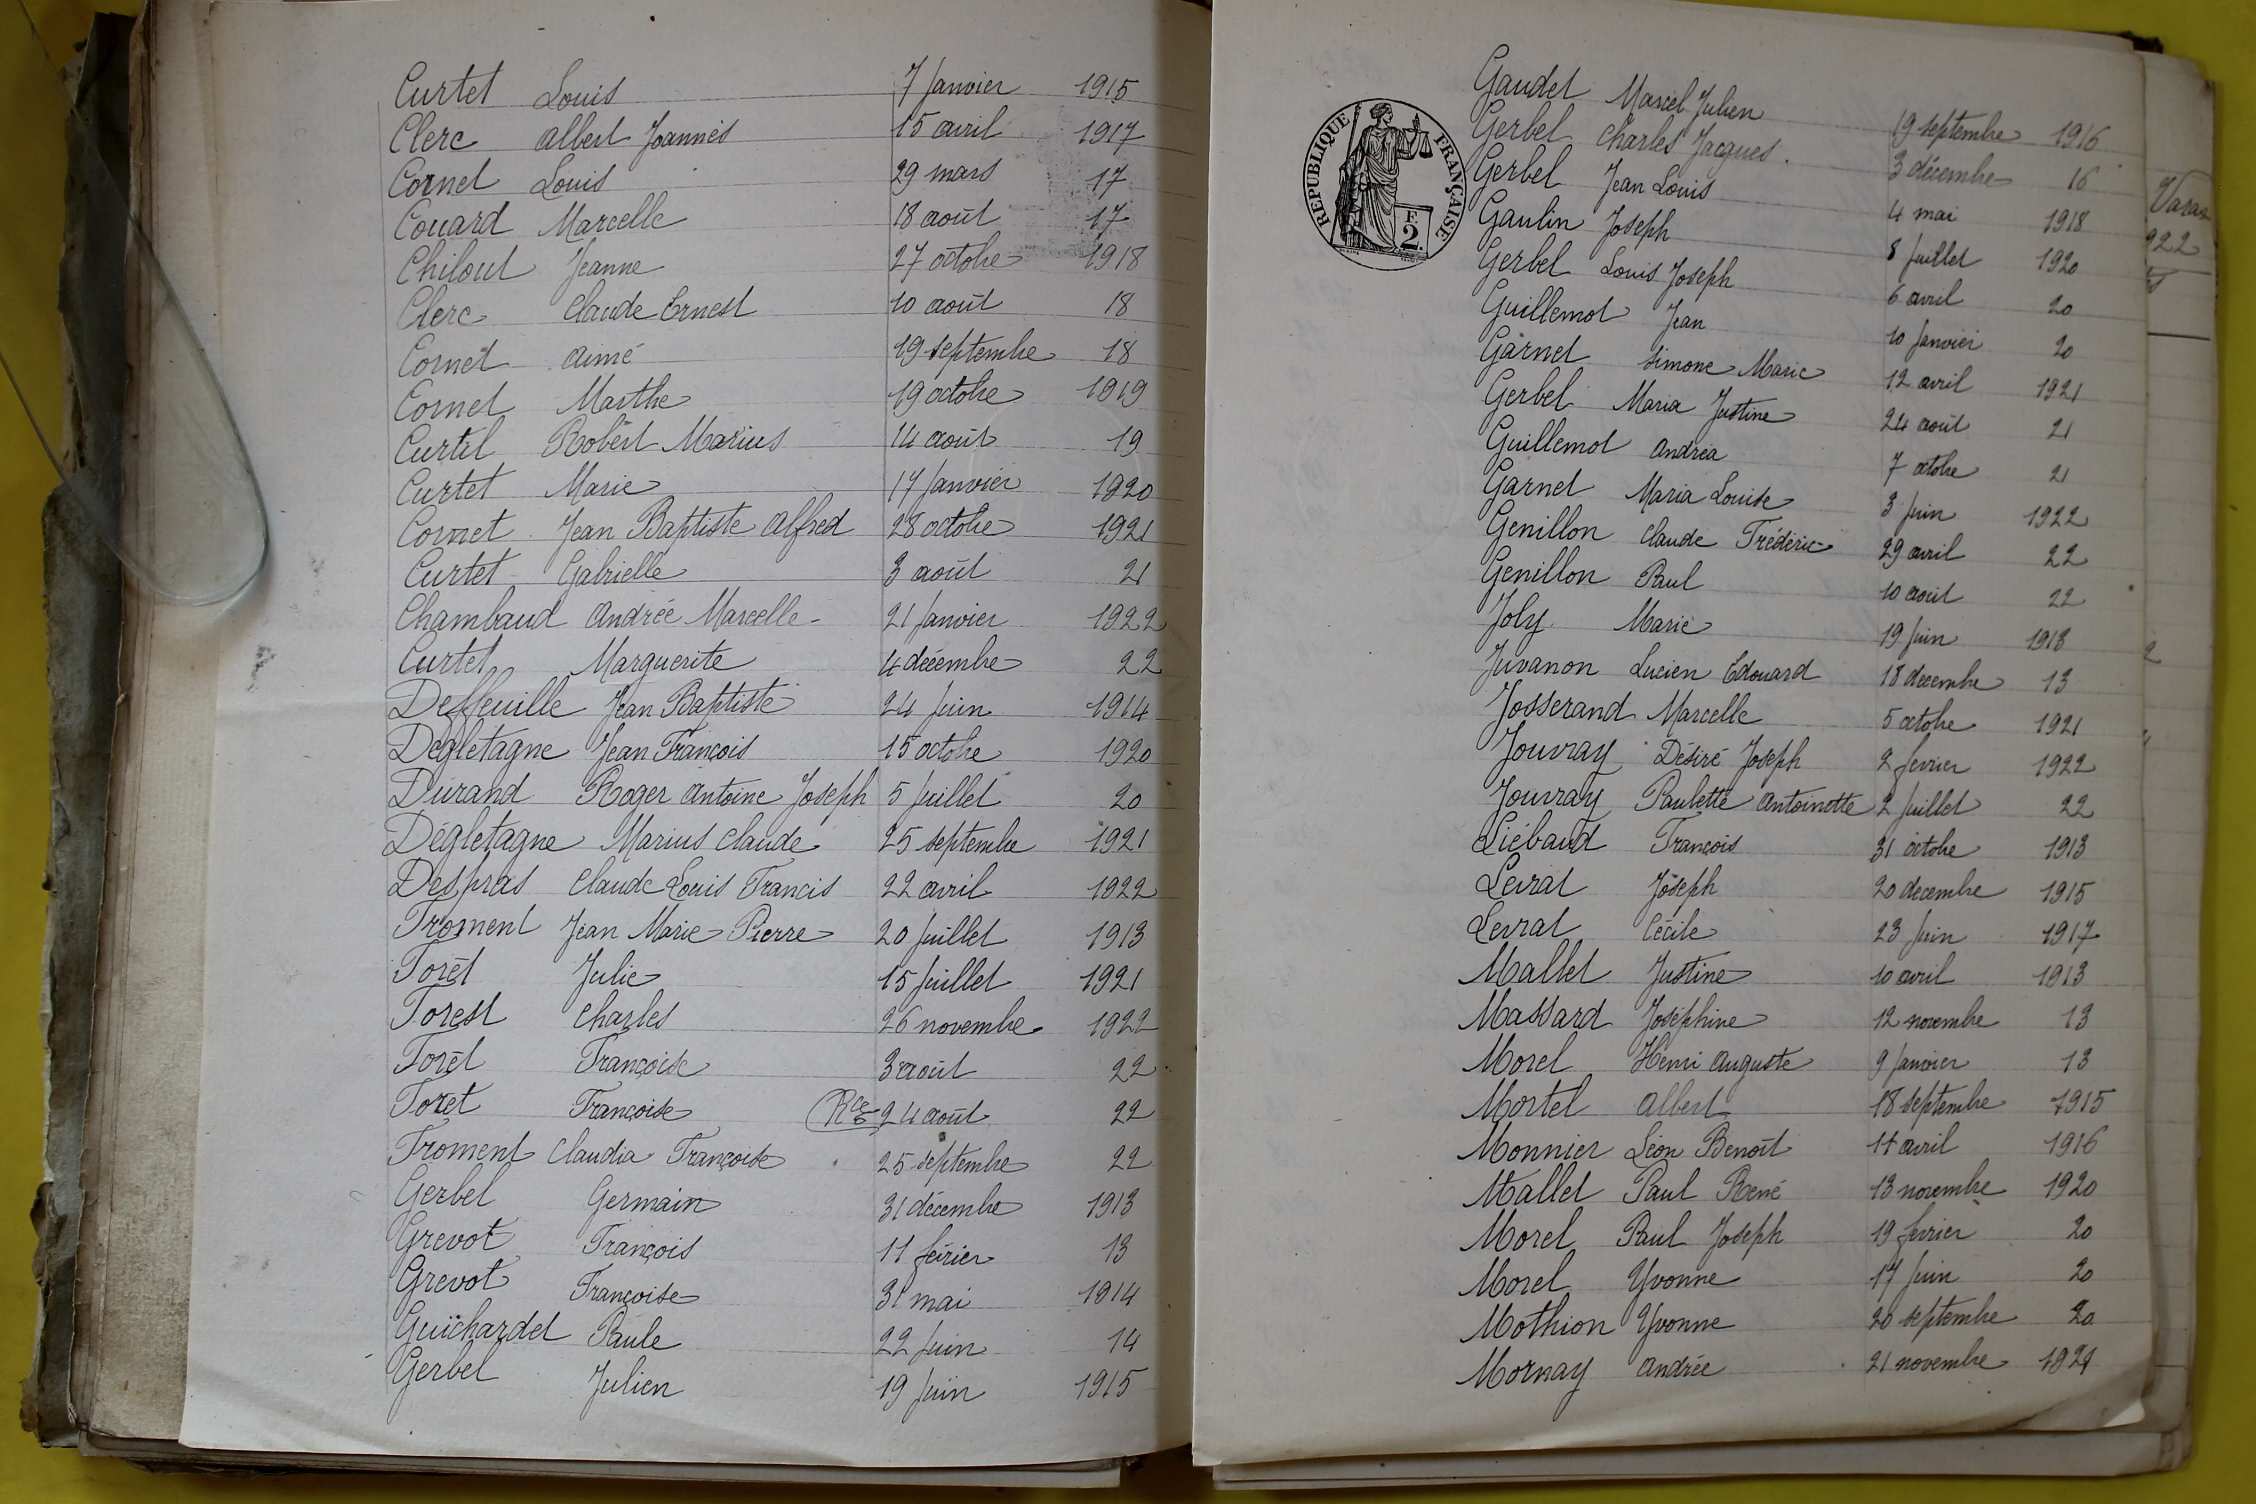 Curtet Louis 7 Janvier 1915
Clerc Albert Joannès 15 avril 1917
Cornet Louis 29 mars 17
Couard Marcelle 18 août 17
Chilout Jeanne 27 octobre 1918
Clerc Claude Ernest 10 août 18
Cornet Aimé 19 septembre 18
Cornet Marthe 19 octobre 1919
Curtil Robert Marius 14 août 19
Curtet Marie 17 Janvier 1920
Cornet Jean Baptiste Alfred 28 octobre 1921
Curtet Gabrielle 3 août 21
Chambaud Andrée Marcelle 21 Janvier 1922
Curtet Marguerite 4 décembre 22
Deffeuille Jean Baptiste 24 Juin 1914
Degletagne Jean François 15 octobre 1920
Durand Roger Antoine Joseph 5 Juillet 20
Dégletagne Marius Claude 25 septembre 1921
Despras Claude Louis Francis 22 avril 1922
Froment Jean Marie Pierre 20 Juillet 1913
Forêt Julie 15 Juillet 1921
Forest Charles 26 novembre 1922
Forêt Françoise 3 août 22
Foret Françoise Rce 24 août 22
Froment Claudia Françoise 25 septembre 22
Gerbel Germain 31 décembre 1913
Grevot François 11 février 13
Grevot Françoise 31 mai 1914
Guichardet Paule 22 Juin 14
Gerbel Julien 19 Juin 1915
REPUBLIQUE FRANÇAISE
F.
2.
Gaudet Marcel Julien 19 septembre 1916
Gerbel Charles Jacques. 3 décembre 16
Gerbel Jean Louis 4 mai 1918
Gaulin Joseph 8 Juillet 1920
Gerbel Louis Joseph 6 avril 20
Guillemot Jean 10 Janvier 20
Garnet Simone Marie 12 avril 1921
Gerbel Maria Justine 24 août 21
Guillemot Andréa 7 octobre 21
Garnet Maria Louise 3 Juin 1922
Genillon Claude Frédéric 29 avril 22
Genillon Paul 10 août 22
Joly Marie 19 Juin 1913
Juvanon Lucien Edouard 18 décembre 13
Josserand Marcelle 5 octobre 1921
Jouvray Désiré Joseph 2 février 1922
Jouvray Paulette Antoinette 2 Juillet 22
Liébaud François 31 octobre 1913
Levrat Joseph 20 décembre 1915
Levrat Cécile 23 Juin 1917
Mallet Justine 10 avril 1913
Massard Joséphine 12 novembre 13
Morel Henri Auguste 9 Janvier 13
Mortel Albert 18 septembre 1915
Monnier Léon Benoît 11 avril 1916
Mallet Paul René 13 novembre 1920
Morel Paul Joseph 19 février 20
Morel Yvonne 17 Juin 20
Mothion Yvonne 20 septembre 20
Mornay Andrée 21 novembre 1921
922